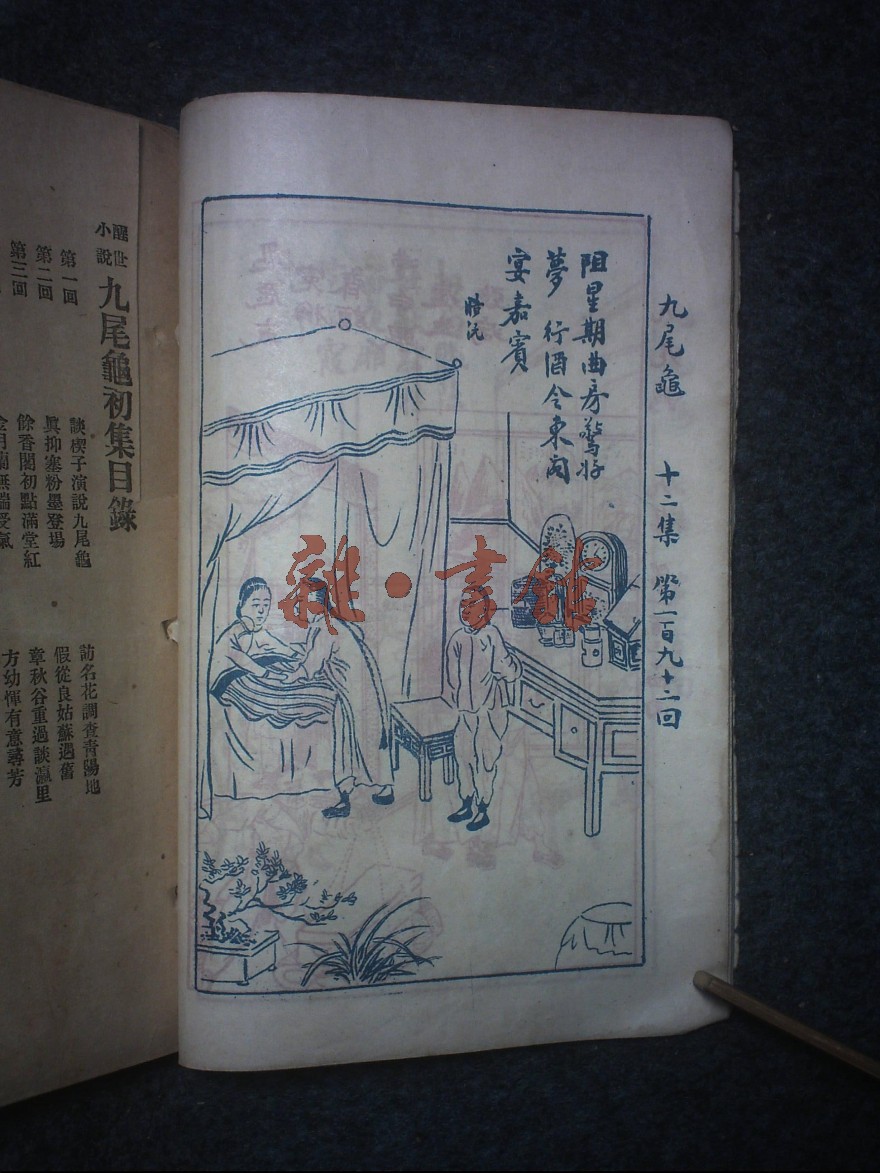 九尾龜 十二集 第一百九十二回
阻星期曲房驚好
夢 行酒令東閣
宴嘉賓
皓沅
雜·書館
醒世
小說
九尾龜初集目錄
第一回 談楔子演說九尾龜 訪名花調查青陽地
第二回 異抑塞粉墨登場 假從良姑蘇遇舊
第三回 餘香閣初點滿堂紅 章秋谷重過談瀛里
金月蘭無端受氣 方幼惲有意尋芳